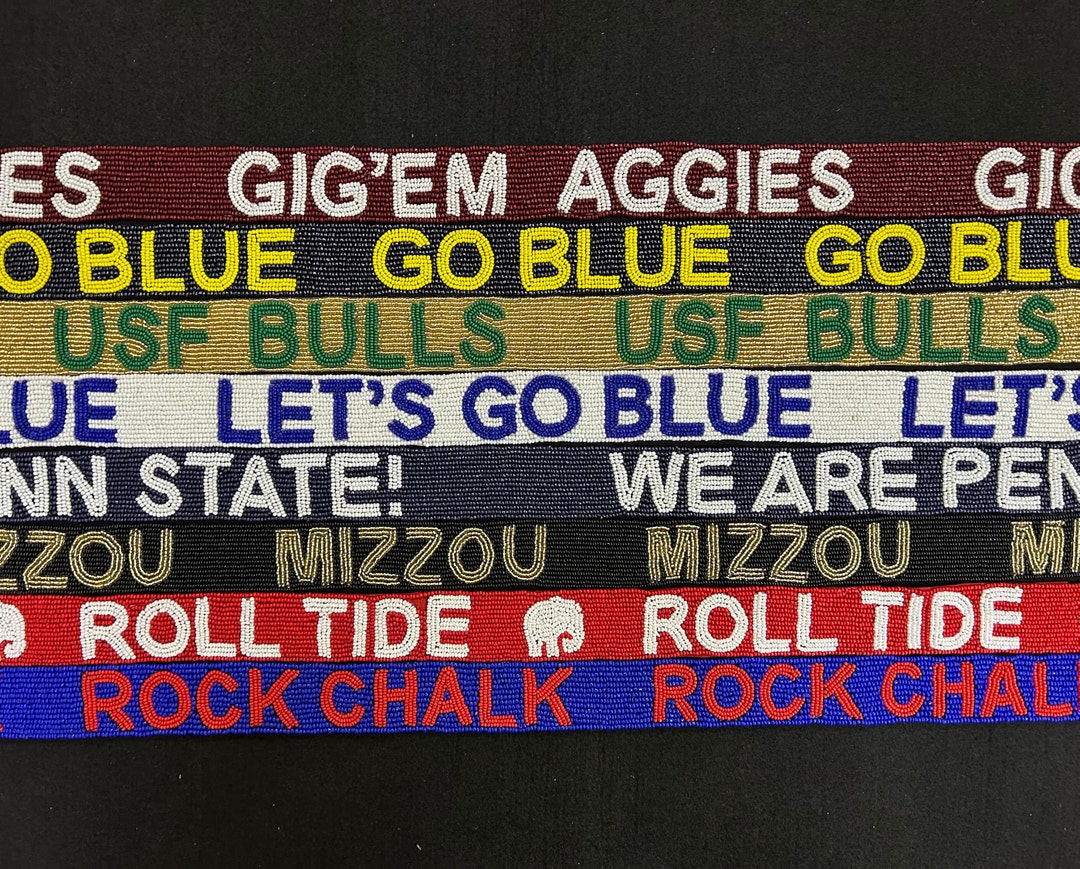 ES GIG'EM AGGIES GIG
GO BLUE GO BLUE GO BLU
USF BULLS USF BULLS
LUE LET'S GO BLUE LET'S
NN STATE! WE ARE PEN
ZZOU MIZZOU MIZZOU MI
ROLL TIDE ROLL TIDE
ROCK CHALK ROCK CHAL